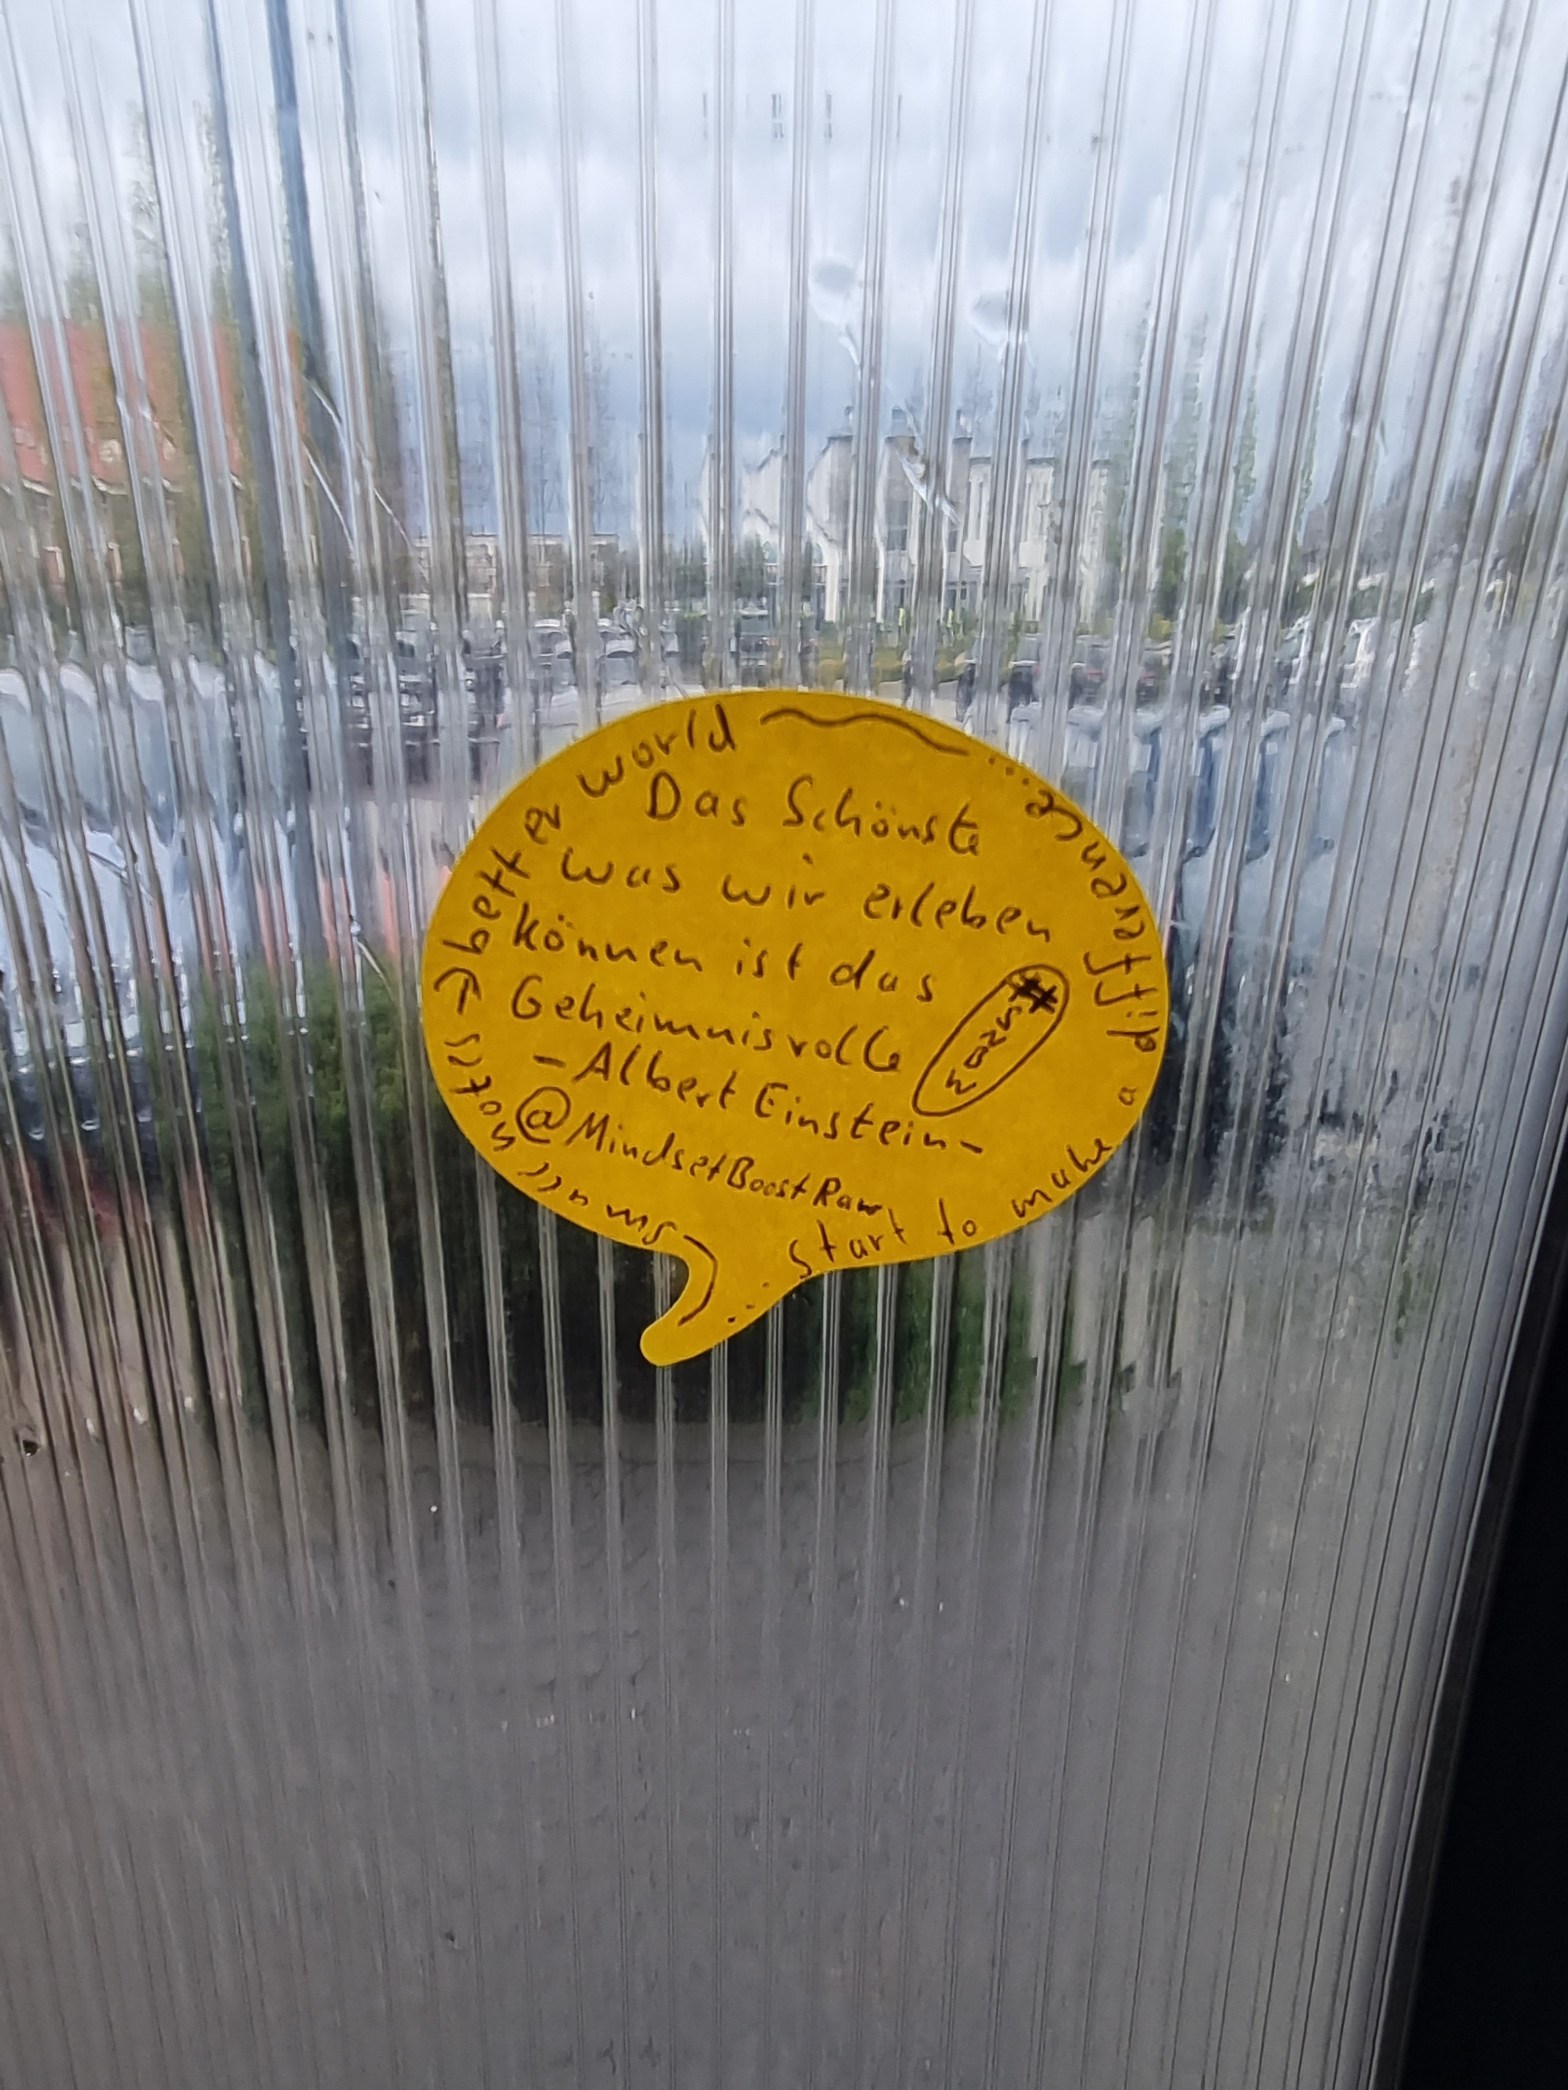 Das Schönste
was wir erleben
können ist das
Geheimnisvolle
- Albert Einstein -
@MindsetBoostRaw
small notes → better world
... start to make a difference...